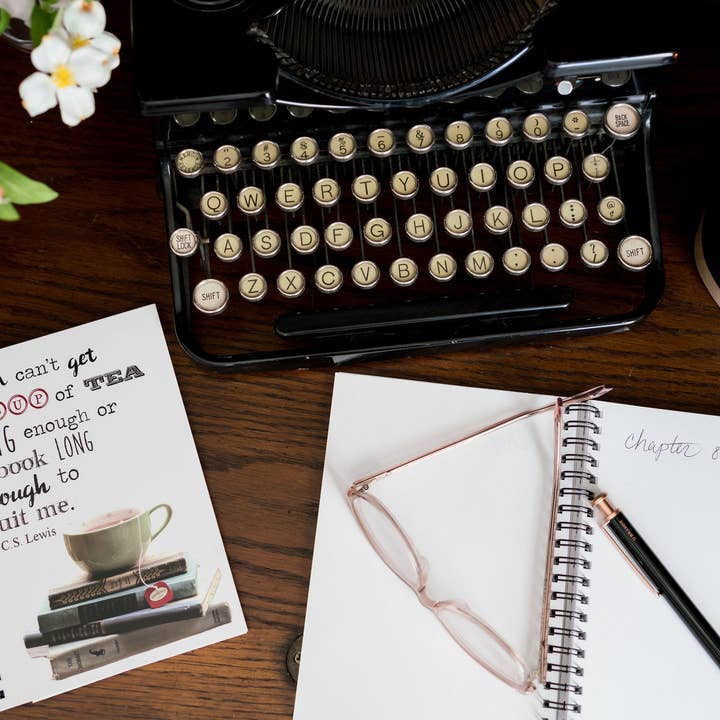 BACK SPACE
2 3 4 5 6 7 8 9 0
Q W E R T Y U I O P
SHIFT LOCK A S D F G H J K L @
SHIFT Z X C V B N M ? SHIFT
can't get
CUP of TEA
enough or
book LONG
to
me.
C.S. Lewis
chapter 8